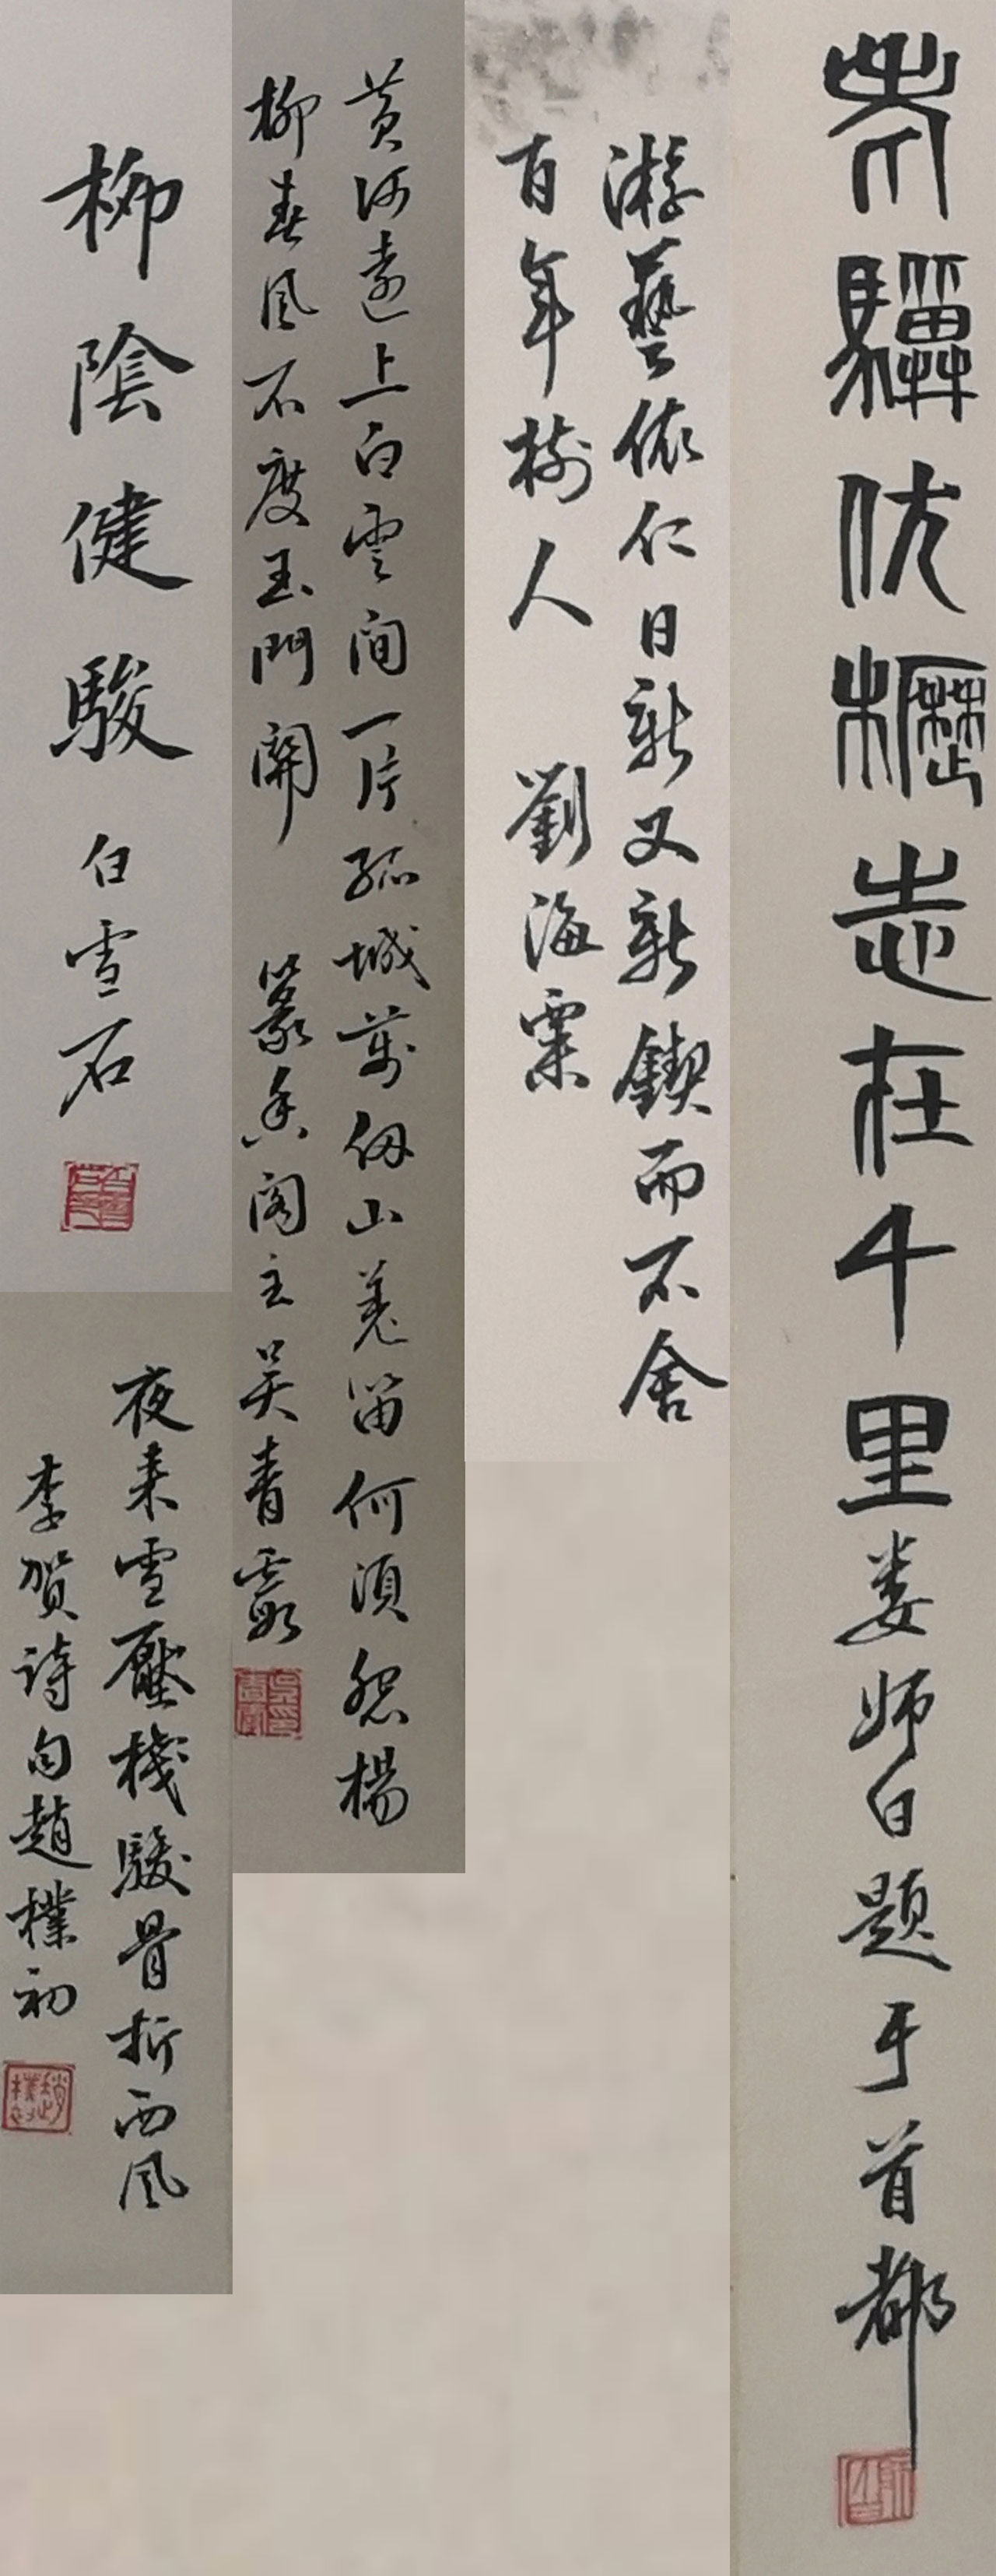 老驥伏櫪志在千里娄师白题于首都
游藝依仁日新又新鍥而不舍
百年樹人 劉海粟
黄河遠上白雲间一片孤城萬仞山羌笛何須怨楊
柳春風不度玉門關 篆香阁主吴青霞
柳陰健駿 白雪石
夜来雪壓棧駿骨折西風
李贺诗句趙樸初